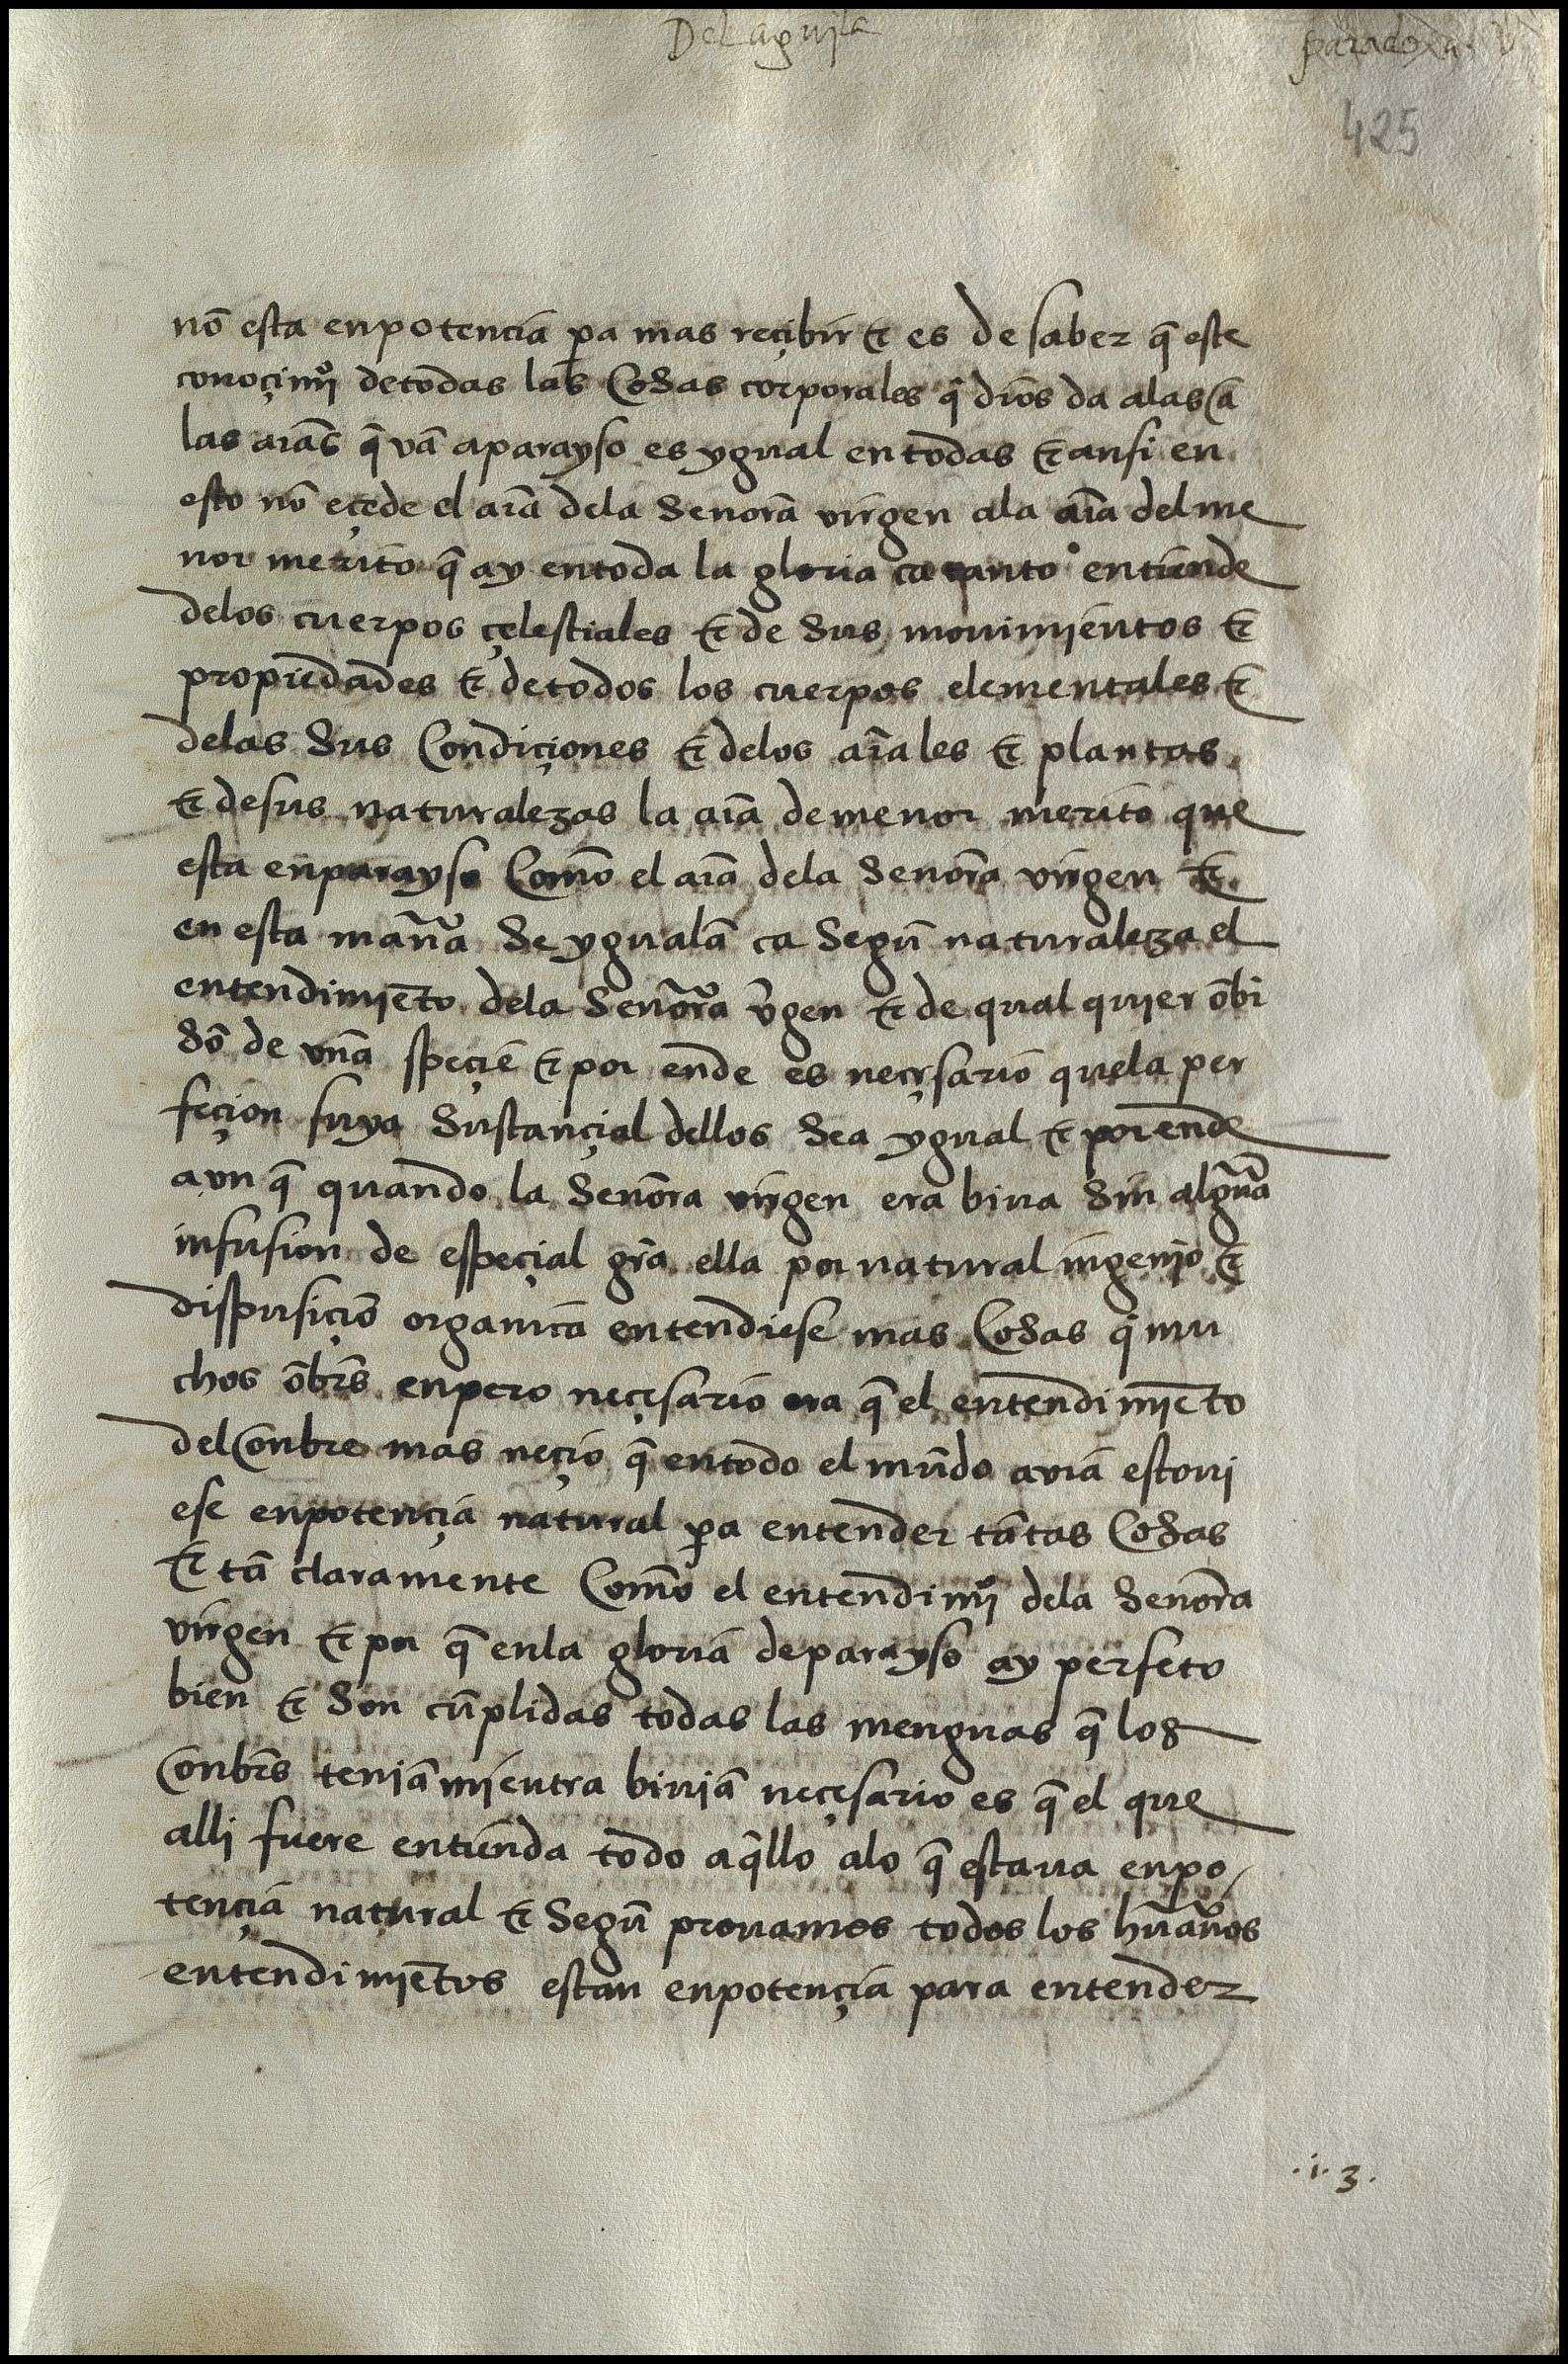 Del aguila
paradoxa. v
425
nō esta enpotencia p̄a mas reçibir & es de saber q̄ este
conoçimjº detodas las Cosas corporales q̄ dios da alas
las aīas q̄ vā aparayso es ygual en todas & ansi en
esto nō eçede el aīa dela Señora virgen ala aīa del me
nor merito q̄ ay entoda la gloria ca tanto entiende
delos cuerpos çelestiales & de sus mouimientos &
propiedades & detodos los cuerpos elementales &
delas sus Condiçiones & delos aīales & plantas
& desus naturalezas la aīa demenor merito que
esta enparayso Como el aīa dela Señora virgen &
en esta man̄a se ygualā ca segū naturaleza el
entendimjēto dela Señora v̄gen & de qual quier ōbr
sō de vna speçie & por ende es neçesario quela per
feçion suya sustançial dellos sea ygual & por ende
avn q̄ quando la Señora virgen era biua sin alguna
infusion de espeçial gr̄a ella por natural ingenjo &
dispusiçiō organica entendiese mas Cosas q̄ mu
chos ōbrs enpero neçesario era q̄ el entendimjēto
del onbre mas neçio q̄ entodo el mūdo avia estoui
ese enpotençia natural p̄a entender tātas Cosas
& tā claramente Como el entendimjº dela Señora
virgen & por q̄ enla gloria deparayso ay perfeto
bien & son cūplidas todas las menguas q̄ los
onbrs tenjā mjentra biujā neçesario es q̄ el que
alli fuere entienda todo aq̄llo alo q̄ estaua enpo
tençia natural & segū prouamos todos los hūanos
entendimjētos estan enpotençia para entender
.i.3.